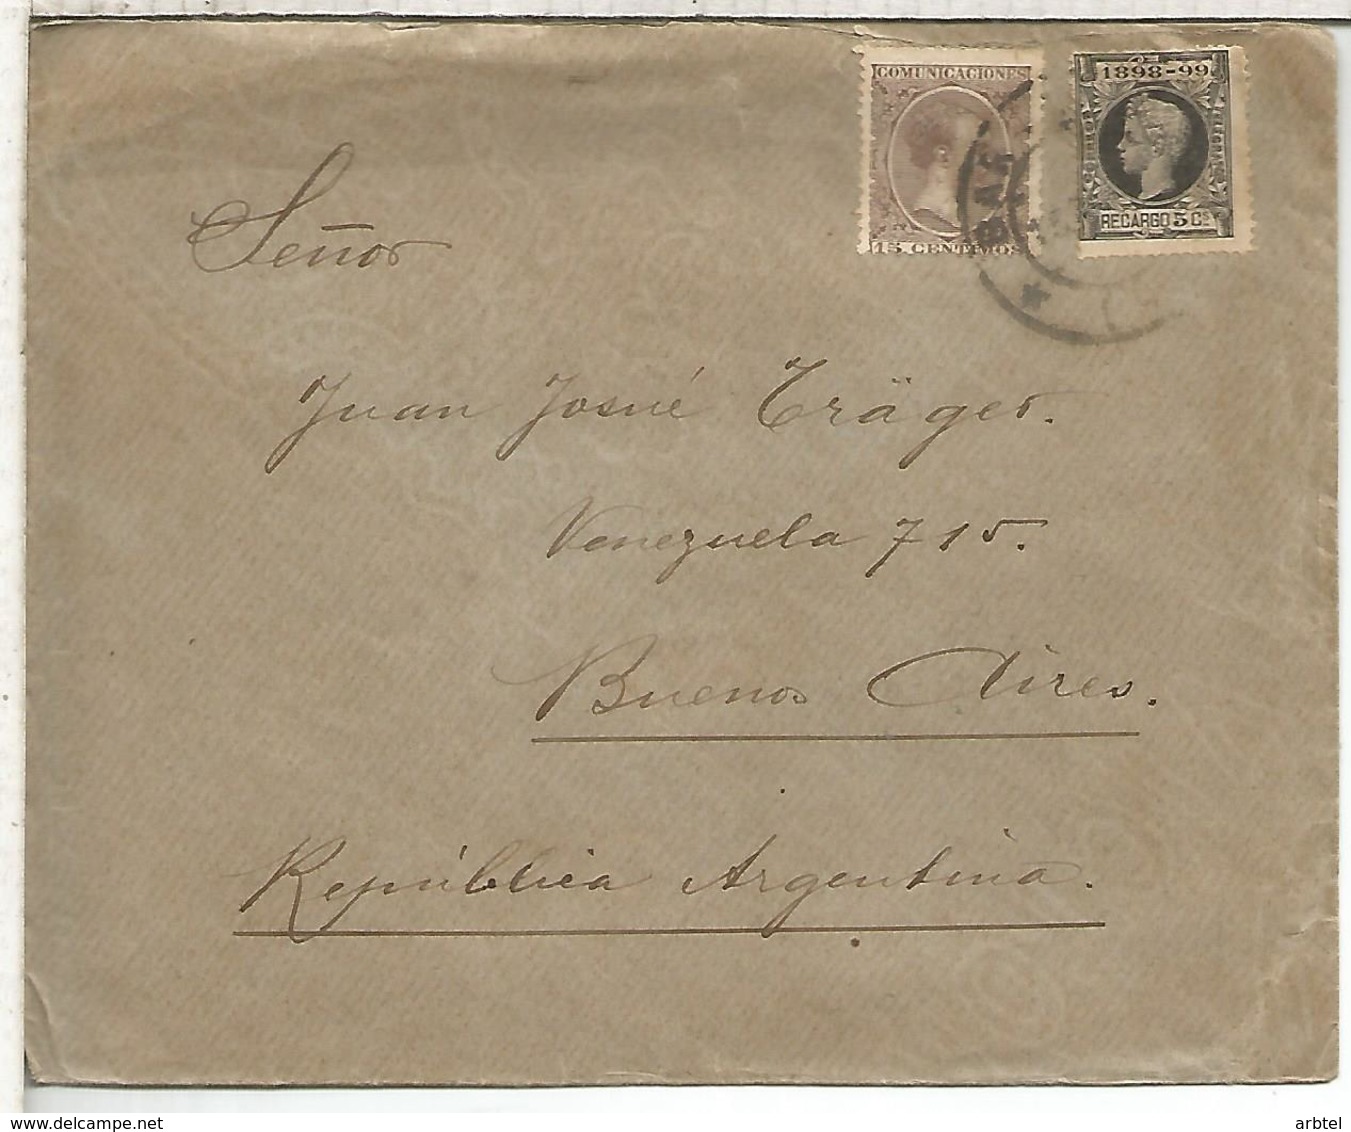 COMUNICACIONES
15 CENTIMOS
1898-99
CORREOS
RECARGO 5 Cs
Señor
Juan Josué Träger.
Venezuela 715.
Buenos Aires.
República Argentina.
www.delcampe.net
arbtel